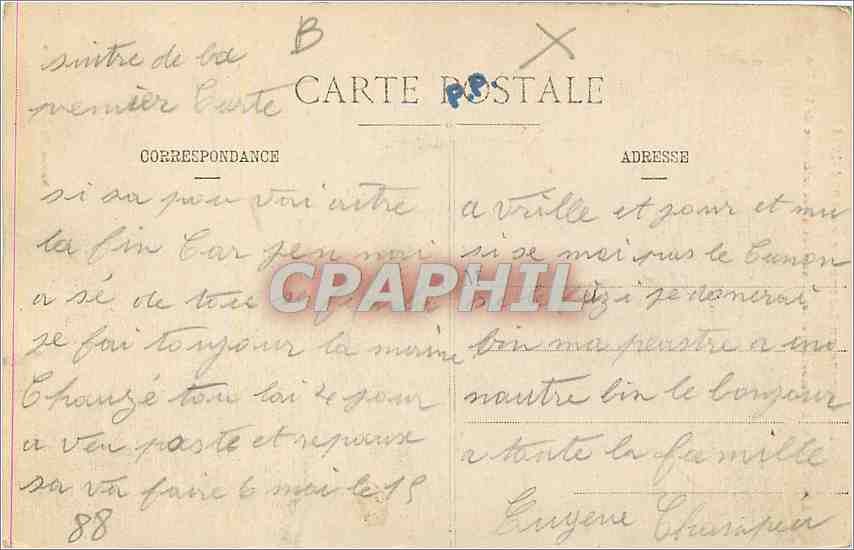 B
sintre de la
premier Carte
CARTE POSTALE
P.P.
CORRESPONDANCE
ADRESSE
si sa pou voi aitre
la fin Car jen nai
a sé de tou
se fai toujour la maime
Chauzé tou lai 4 jour
a ven poste et repaux
sa va faire 6 moi le 15
88
a vville et jour et nui
si se moi pas le Canon
se donerai
bin ma plastre a un
nautre bin le bonjour
a toute la famille
Eugene
CPAPHIL